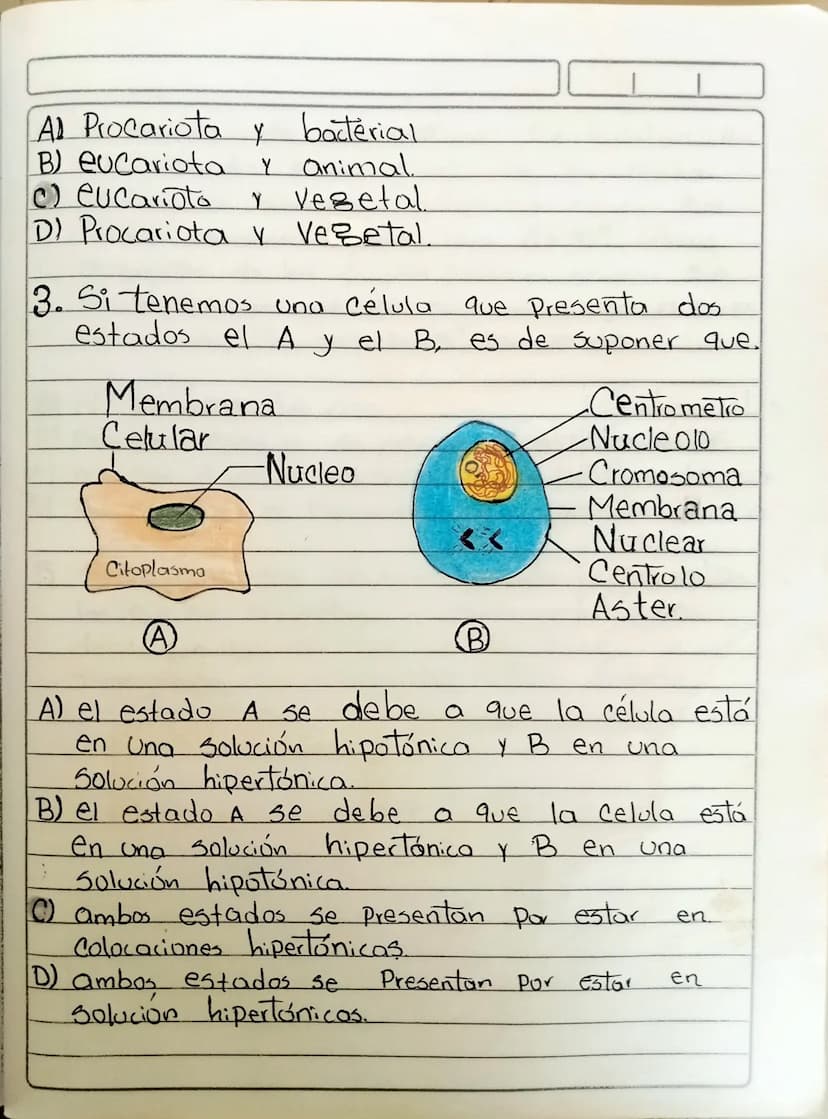 A) Procariota y bactérial
B) eucariota y animal.
C) eucariota y vegetal.
D) Procariota y vegetal.
3. Si tenemos una célula que presenta dos
estados el A y el B, es de suponer que.
Membrana
Celular
Nucleo
Citoplasma
A
Centrometro
Nucleolo
Cromosoma
Membrana
Nuclear
Centrolo
Aster.
B
A) el estado A se debe a que la célula está
en una solución hipotónica y B en una
solución hipertónica.
B) el estado A se debe a que la celula está
en una solución hipertónica y B en una
solución hipotónica.
C) ambos estados se presentan por estar en
colocaciones hipertónicas.
D) ambos estados se presentan por estar en
solución hipertónicas.